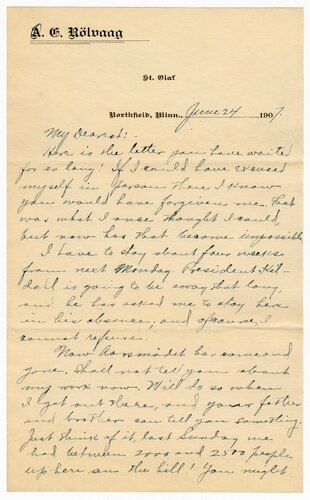 A. E. Rölvaag
St. Olaf
Northfield, Minn., June 24 1907.
My Dearest:-
Here is the letter you have waited
for so long! If I could have excused
myself in person there I know
you would have forgiven me. That
was what I once thought I could,
but now has that become impossible.
I have to stay about four weeks
from next Monday. President Kil-
dahl is going to be away that long,
and he has asked me to stay here
in his absence; and of course, I
cannot refuse.
Now has come and
gone. Shall not tell you about
my work now. Will do so when
I get out there, and your father
and brother can tell you something.
Just think of it, last Sunday we
had between 2000 and 2500 people
up here on the hill! You might